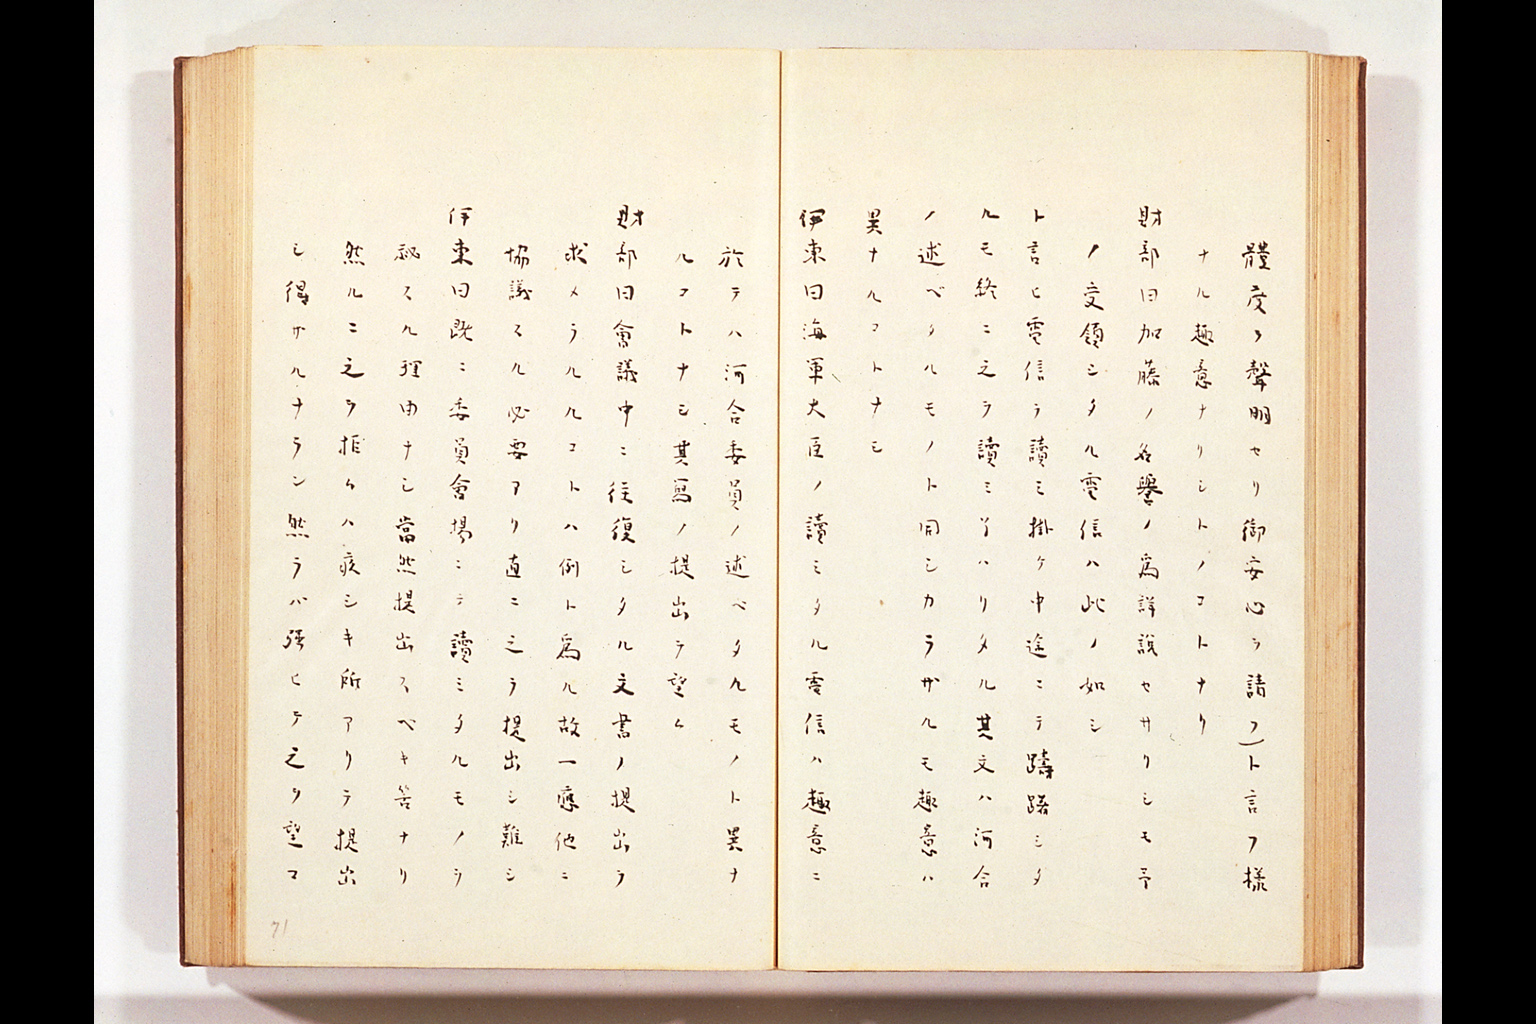 體度ヲ聲明セリ御安心ヲ請フ)ト言フ樣
ナル趣意ナリシトノコトナリ
財部曰加藤ノ名譽ノ爲詳説セサリシモ予
ノ受領シタル電信ハ此ノ如シ
ト言ヒ電信ヲ讀ミ掛ケ中途ニテ躊躇シタ
ルモ終ニ之ヲ讀ミ了ハリタル其文ハ河合
ノ述ベタルモノト同シカラザルモ趣意ハ
異ナルコトナシ
伊東曰海軍大臣ノ讀ミタル電信ハ趣意ニ
於テハ河合委員ノ述ベタルモノト異ナ
ルコトナシ其寫ノ提出ヲ望ム
財部曰會議中ニ往復シタル文書ノ提出ヲ
求メラルルコトハ例ト爲ル故一應他ニ
協議スル必要アリ直ニ之ヲ提出シ難シ
伊東曰既ニ委員會場ニテ讀ミタルモノヲ
祕スル理由ナシ當然提出スベキ筈ナリ
然ルニ之ヲ拒ムハ疚シキ所アリテ提出
シ得ザルナラン然ラバ強ヒテ之ヲ望マ
71